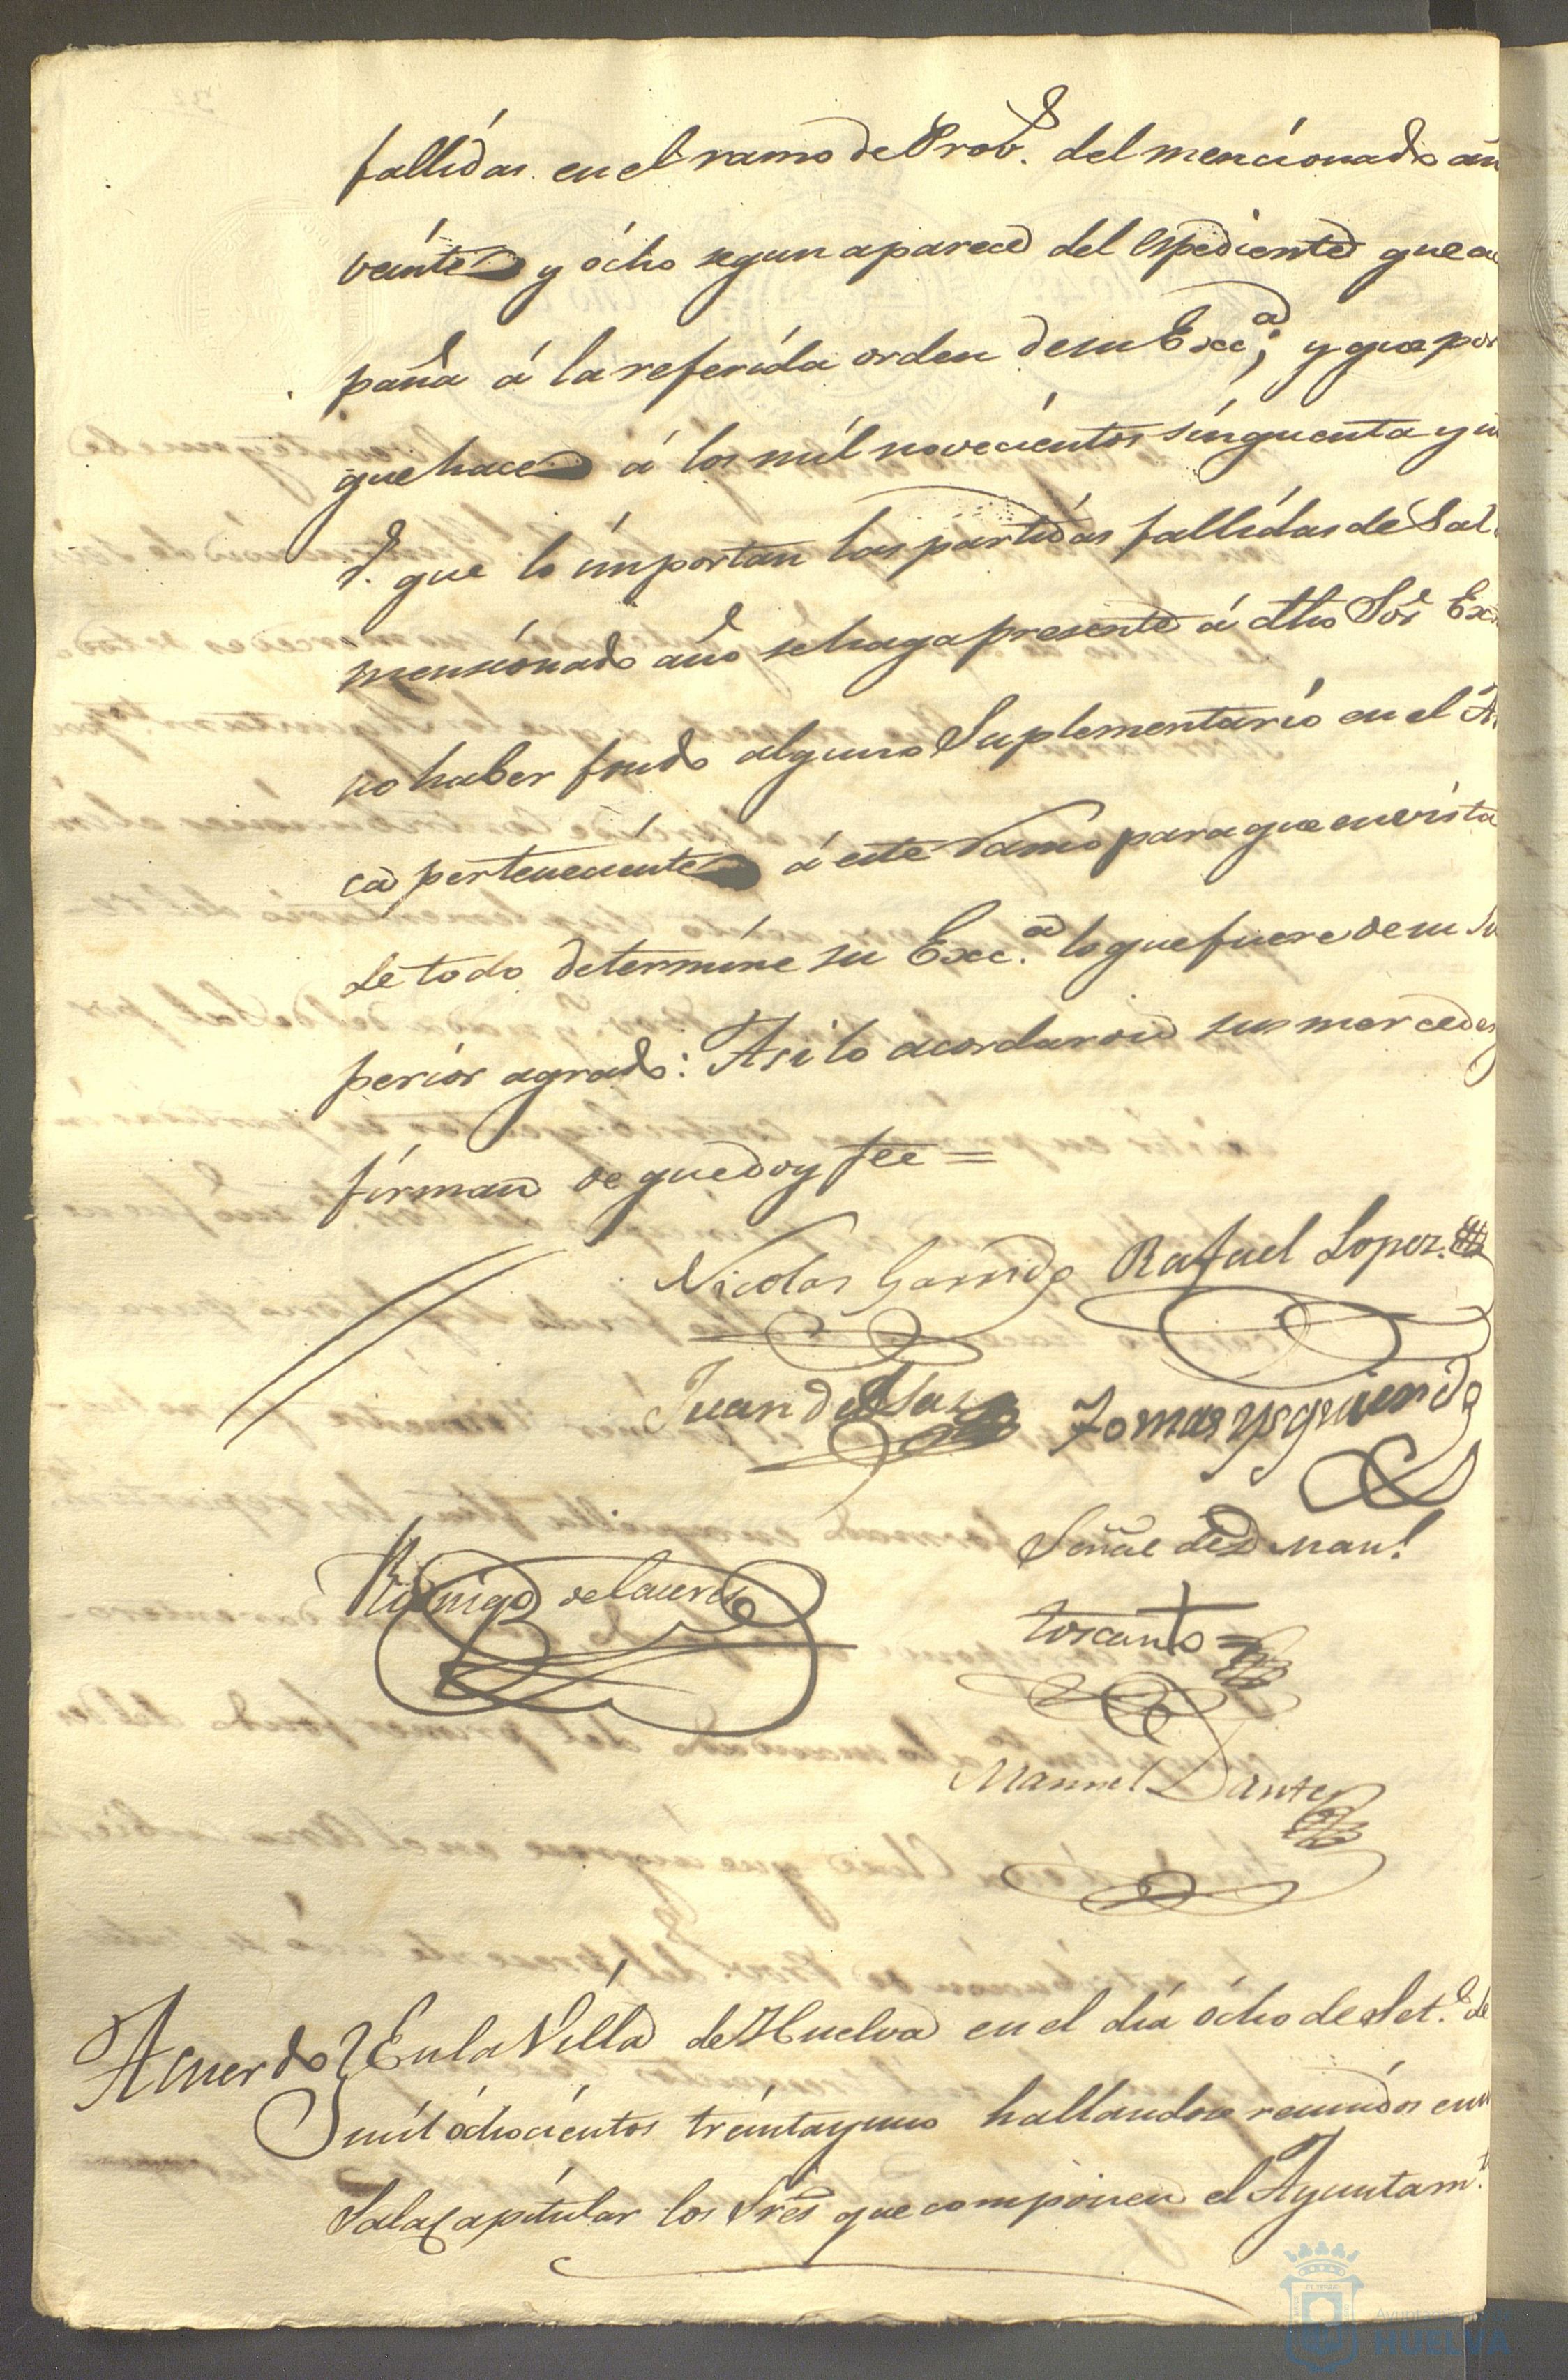 fallidas en el ramo de Prov.s del mencionado añ
veinte y ócho segun aparece del Espediente que a
paña á la referida orden de su Exc.a; y que por
que hace á los mil novecientos sinquenta y u
r.s que lo importan las partidas fallidas de Sal
mensionado año se haga presente á dho Sor Ex
no haber fondo alguno Suplementario en el A
ca perteneciente á este Ramo para que en vista
de todo determine su Exc.a lo que fuere de su Su
perior agrado: Asi lo acordaron sus mercedes
firman de que doy fee =
Nicolas Garrido Rafael Lopez
Juan de
Tomas Ysquierdo
Señal de D Man.l
+
toscano =
Rodrigo de
Manuel Dante
Acuerdo En la Villa de Huelva en el dia ócho de Set.e de
mil óchocientos treinta y uno hallandose reunidos en
Sala Capitular los Sres que componen el Ayuntam.to
HUELVA